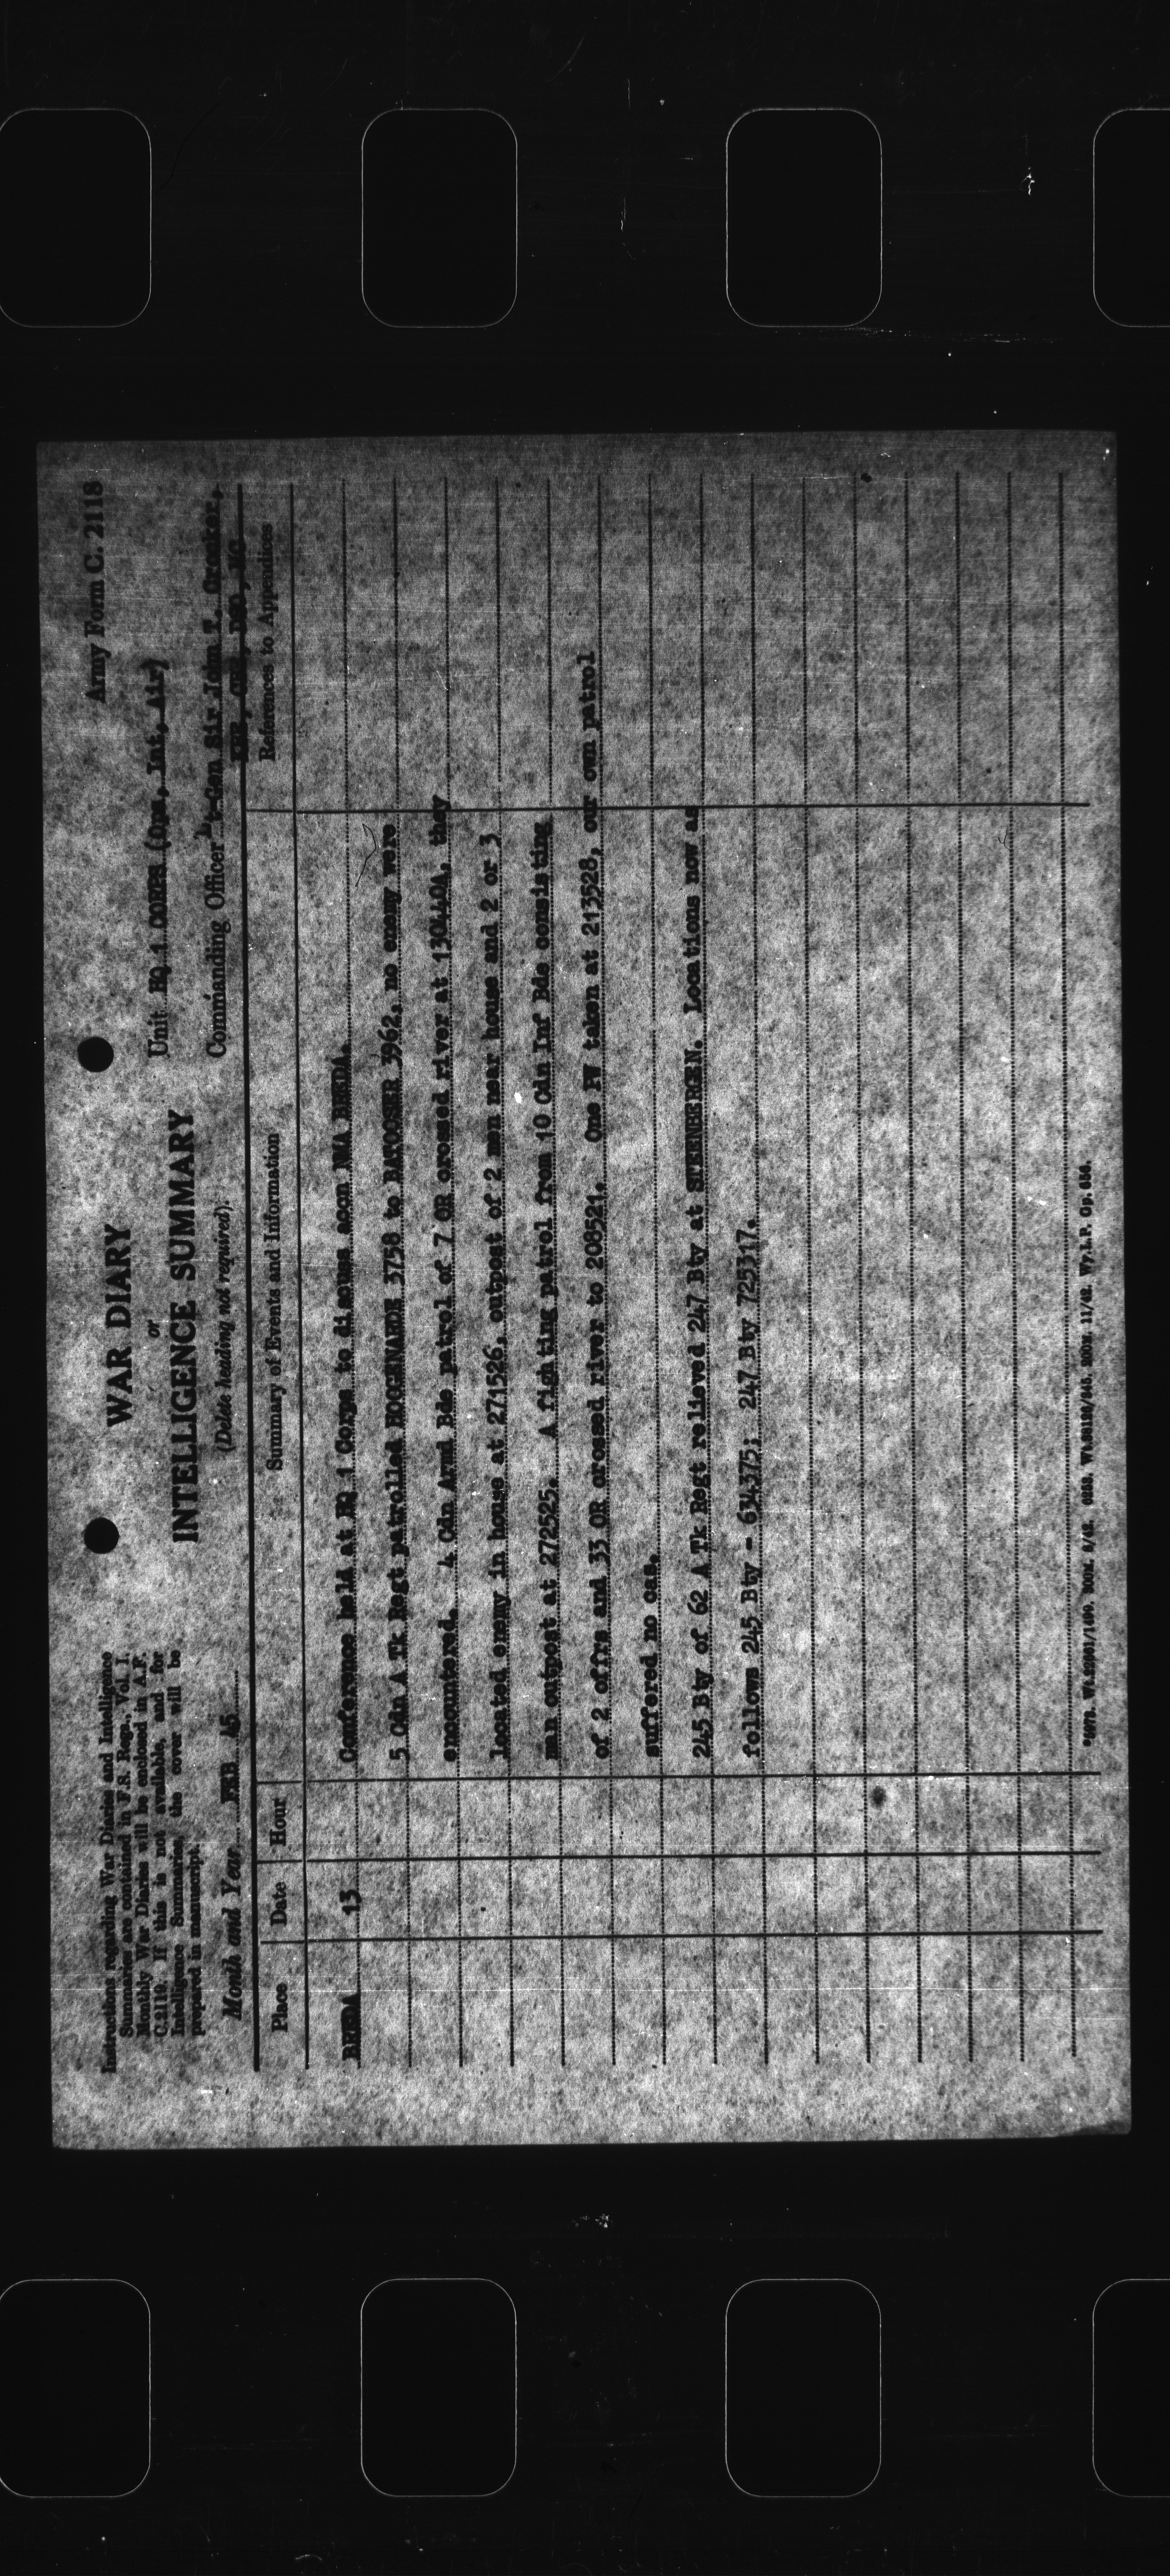 Army Form C. 2118
WAR DIARY
or
INTELLIGENCE SUMMARY
(Delete heading not required).
Instructions regarding War Diaries and Intelligence
Summaries are contained in F.S. Regs., Vol. I.
Monthly War Diaries will be enclosed in A.F.
C.2119. If this is not available, and for
Intelligence Summaries, the cover will be
prepared in manuscript.
Month and Year FEB 45
Unit HQ 1 CORPS (Ops, Int, Air)
Commanding Officer Lt-Gen Sir John T. Crocker,
DSO, MC
Place Date Hour Summary of Events and Information References to Appendices
BREDA 13 Conference held at HQ 1 Corps to discuss accn NAA BREDA.
5 Cdn A Tk Regt patrolled ROGGENANDE 3758 to BATGOSER 3962, no enemy were
encountered. 4 Cdn Armd Bde patrol of 7 OR crossed river at 130440A, they
located enemy in house at 271526, outpost of 2 men near house and 2 or 3
man outpost at 272525. A fighting patrol from 10 Cdn Inf Bde consisting
of 2 offrs and 33 OR crossed river to 208521. One PW taken at 213528, our own patrol
suffered no cas.
245 Bty of 62 A Tk Regt relieved 247 Bty at STEENBERGEN. Locations now as
follows 245 Bty - 634375; 247 Bty 725317.